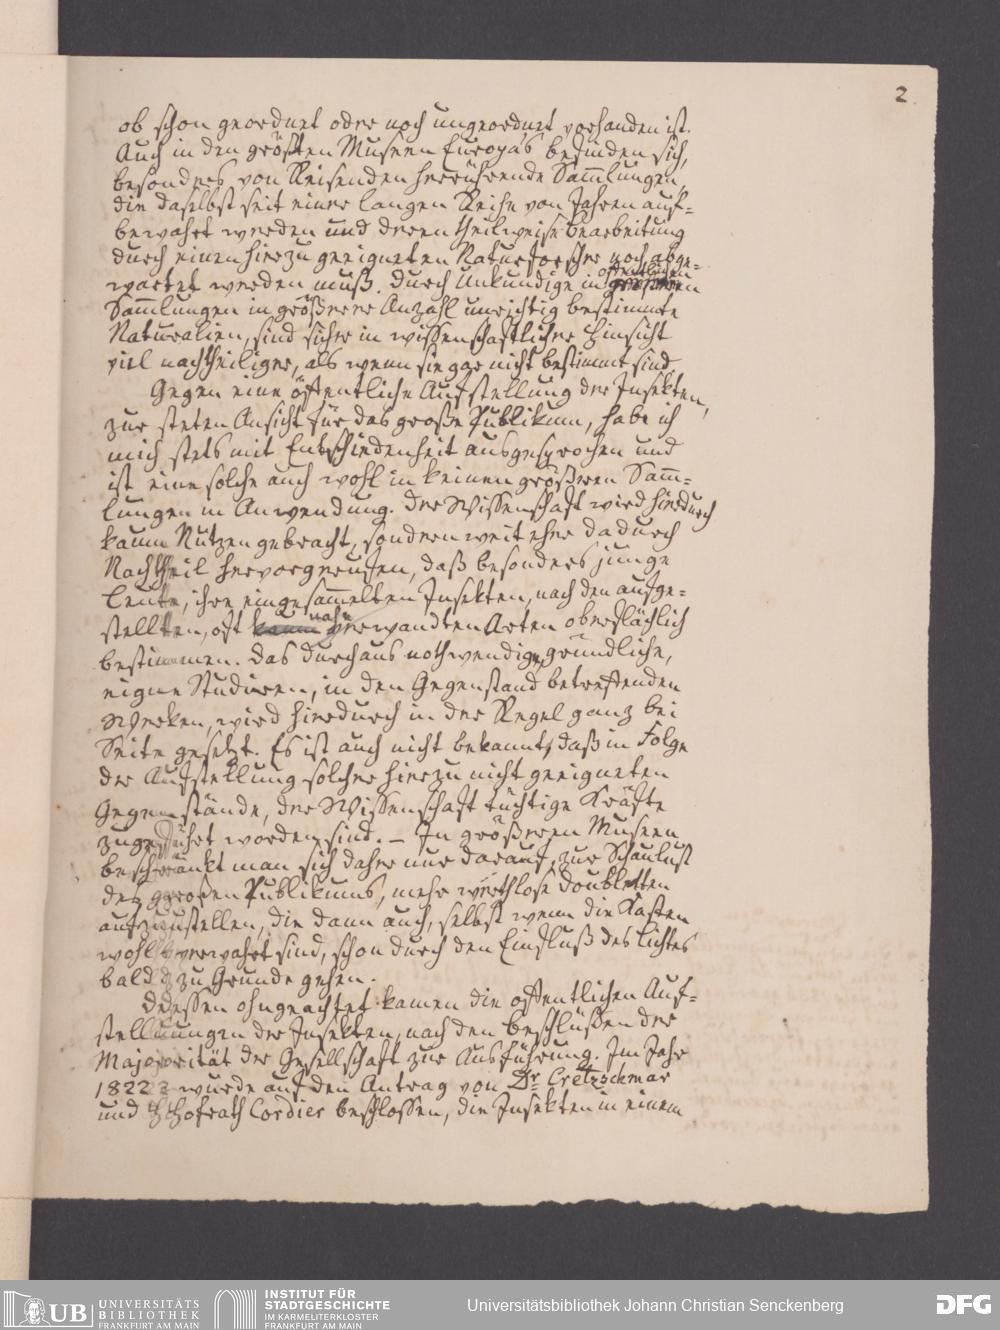 2
ob schon geordnet oder noch ungeordnet vorhanden ist.
Auch in den größten Museen Europa's befinden sich,
besonders von Reisenden herrührende Sam̅lungen,
die daselbst seit einer langen Reihe von Jahren auf=
bewahrt werden und deren theilweise Bearbeitung
durch einen hierzu geeigneten Naturforscher noch abge=
öffentlichen
wartet werden muß. Durch Unkundige in größeren
Sam̅lungen in größerer Anzahl unrichtig bestimmte
Naturalien, sind sicher in wissenschaftlicher Hinsicht
viel nachtheiliger, als wenn sie gar nicht bestimmt sind.
Gegen eine öffentliche Aufstellung der Insekten,
zur steten Ansicht für das große Publikum, habe ich
mich stets mit Entschiedenheit ausgesprochen und
ist eine solche auch wohl in keinen größeren Sam̅=
lungen in Anwendung. Der Wissenschaft wird hierdurch
kaum Nutzen gebracht, sondern weit eher dadurch
Nachtheil hervorgerufen, daß besonders junge
Leute, ihre eingesam̅elten Insekten, nach den aufge=
nahe
stellten, oft kaum verwandten Arten oberflächlich
bestimmen. Das durchaus nothwendige, gründliche,
eigne Studiren, in den Gegenstand betreffenden
Werken, wird hierdurch in der Regel ganz bei
Seite gesetzt. Es ist auch nicht bekannt, daß in Folge
der Aufstellung solcher hierzu nicht geeigneten
Gegenstände, der Wissenschaft tüchtige Kräfte
zugeführt worden sind. – In größeren Museen
beschränkt man sich daher nur darauf, zur Schaulust
des großen Publikums, mehr werthlose Doubletten
aufzustellen, die dann auch, selbst wenn die Kasten
wohl verwahrt sind, schon durch den Einfluß des Lichtes
bald zu Grunde gehen.
Dessen ohngeachtet kamen die öffentlichen Auf=
stellungen der Insekten, nach den Beschlüßen der
Majorität der Gesellschaft zur Ausführung. Im Jahr
1822 wurde auf den Antrag von Dr. Cretzschmar
und Hofrath Cordier beschlossen, die Insekten in einem
UB UNIVERSITÄTS
BIBLIOTHEK
FRANKFURT AM MAIN
INSTITUT FÜR
STADTGESCHICHTE
IM KARMELITERKLOSTER
FRANKFURT AM MAIN
Universitätsbibliothek Johann Christian Senckenberg
DFG